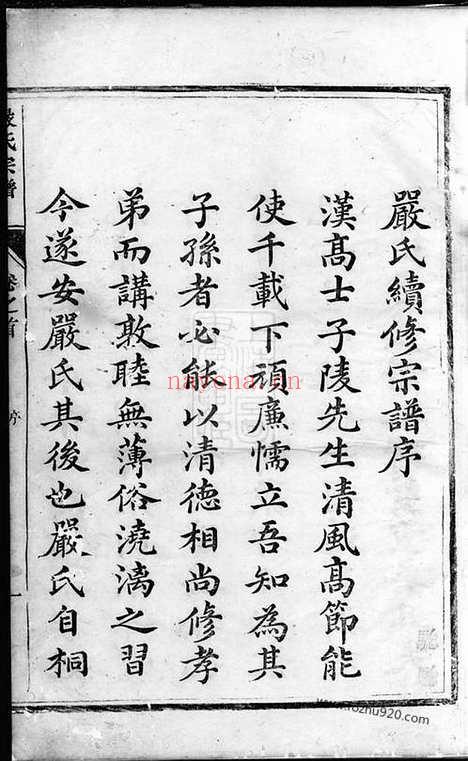 嚴氏續修宗譜序
漢高士子陵先生清風高節能
使千載下頑廉懦立吾知為其
子孫者必能以清德相尚修孝
弟而講敦睦無薄俗澆漓之習
今遂安嚴氏其後也嚴氏自桐
嚴氏宗譜
卷之首
序
一
nayona.cn
www.rozhu920.com